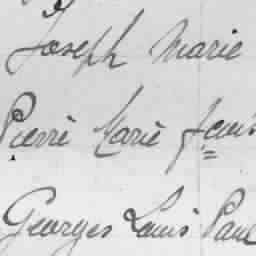 Joseph Marie
Pierre Marie Jean
Georges Louis Paul